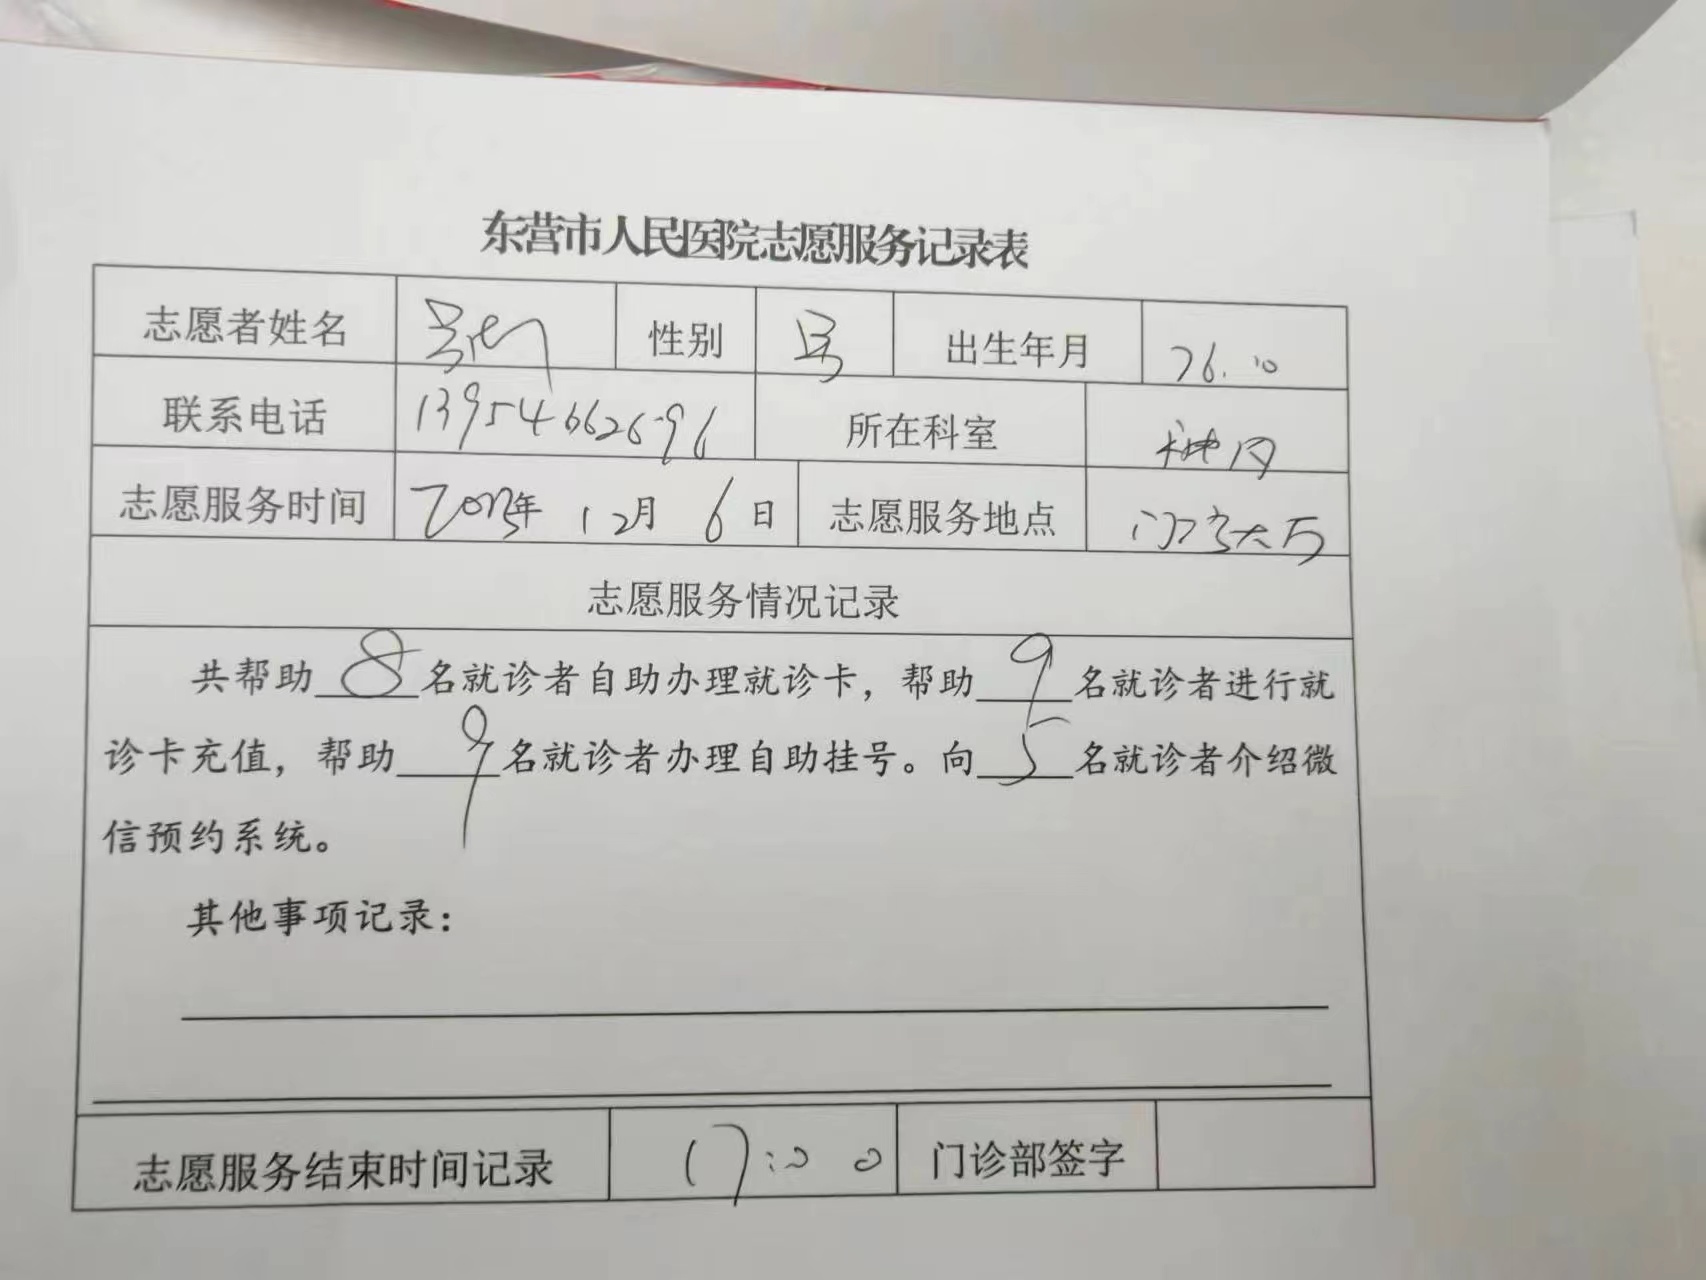 东营市人民医院志愿服务记录表
志愿者姓名 性别 男 出生年月 76.10
联系电话 13954662696 所在科室
志愿服务时间 2023年 12月 6日 志愿服务地点 门诊大厅
志愿服务情况记录
共帮助8名就诊者自助办理就诊卡，帮助9名就诊者进行就
诊卡充值，帮助9名就诊者办理自助挂号。向5名就诊者介绍微
信预约系统。
其他事项记录：
志愿服务结束时间记录 17:00 门诊部签字